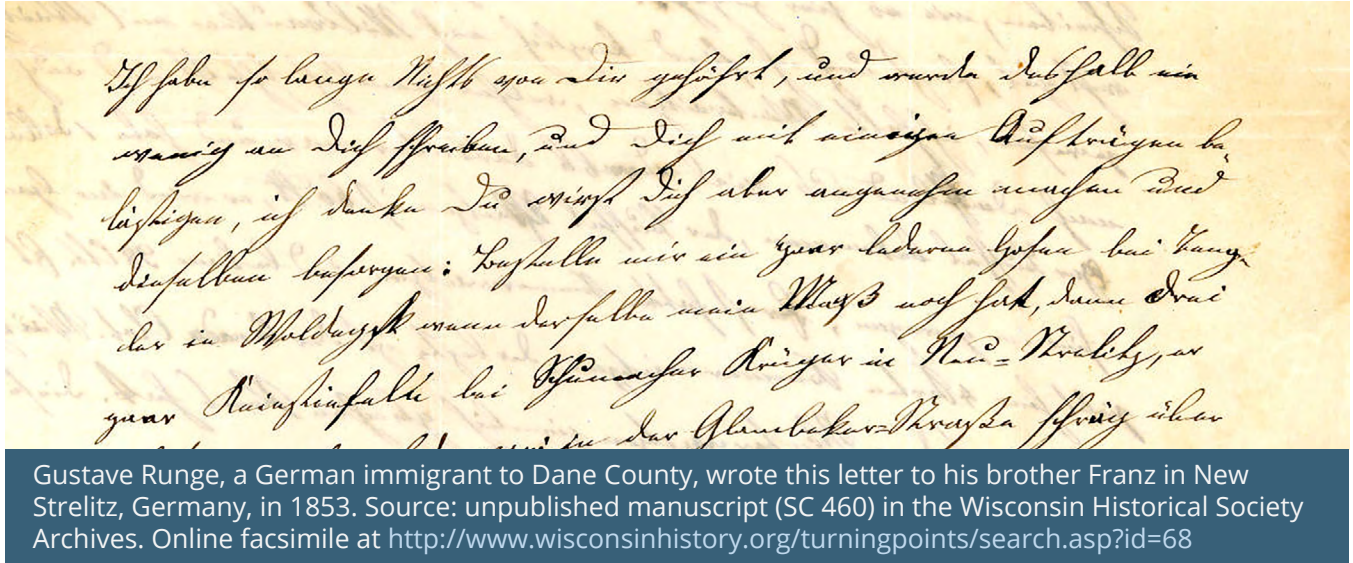 Ich habe so lange Nichts von Dir gehöhrt, und werde deshalb ein
wenig an Dich schreiben, und Dich mit einigen Aufträgen be-
lästigen, ich denke Du wirst Dich aber angenehm machen und
dieselben besorgen: Bestelle mir ein paar lederne Hosen bei
der in Woldegk wenn derselbe mein Maaß noch hat, dann drei
paar Kniestiefeln bei Schumacher Krüger in Neu=Strelitz, er
in der Glambeker=Straße schräg über
Gustave Runge, a German immigrant to Dane County, wrote this letter to his brother Franz in New
Strelitz, Germany, in 1853. Source: unpublished manuscript (SC 460) in the Wisconsin Historical Society
Archives. Online facsimile at http://www.wisconsinhistory.org/turningpoints/search.asp?id=68